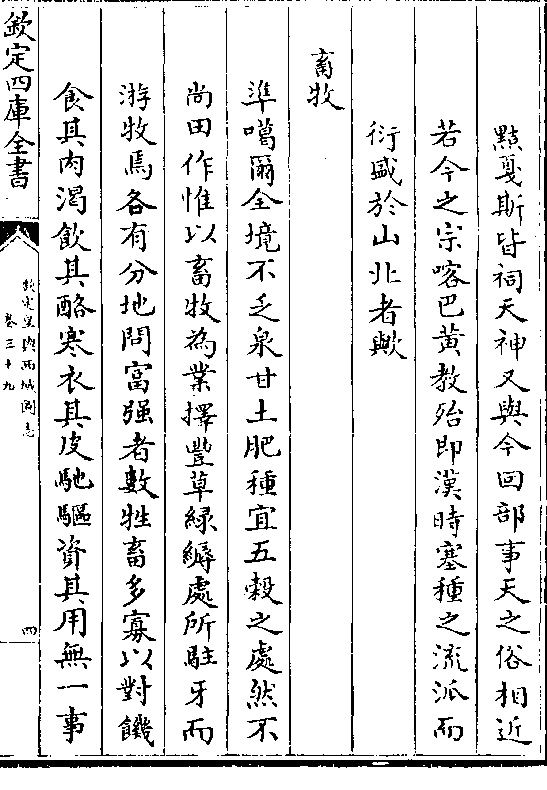 黠戛斯皆祠天神又與今回部事天之俗相近
若今之宗喀巴黃教殆即漢時塞種之流派而
衍盛於山北者歟
畜牧
準噶爾全境不乏泉甘土肥種宜五穀之處然不
尚田作惟以畜牧為業擇豐草綠縟處所駐牙而
游牧焉各有分地問富强者數牲畜多寡以對饑
食其肉渴飲其酪寒衣其皮馳驅資其用無一事
欽定四庫全書
欽定皇輿西域圖志
卷三十九
四